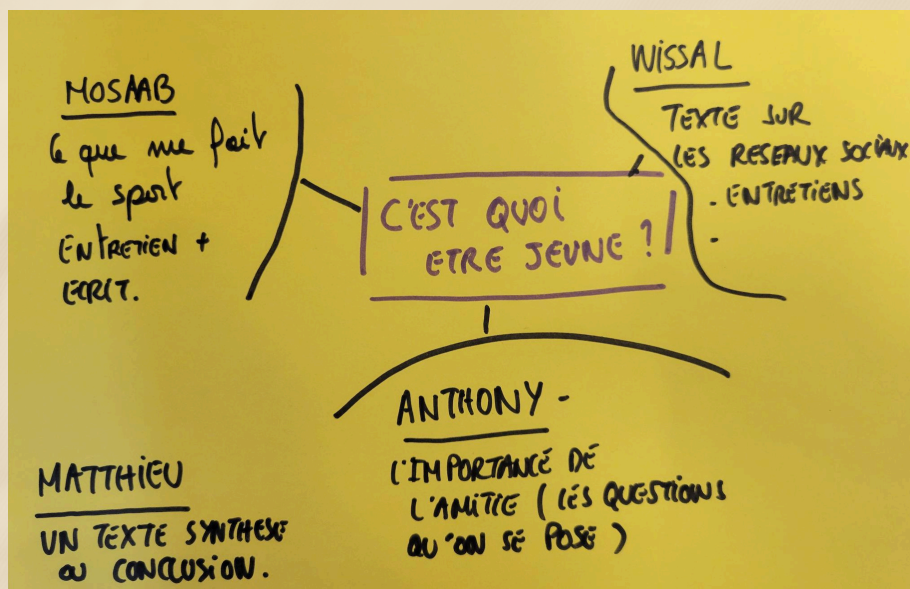 MOSAAB
Ce que me fait
le sport
ENTRETIEN +
ECRIT.
WISSAL
TEXTE SUR
LES RESEAUX SOCIAUX
- ENTRETIENS
-
C'EST QUOI
ETRE JEUNE ?
ANTHONY -
L'IMPORTANCE DE
L'AMITIE ( LES QUESTIONS
QU'ON SE POSE )
MATTHIEU
UN TEXTE SYNTHESE
OU CONCLUSION.